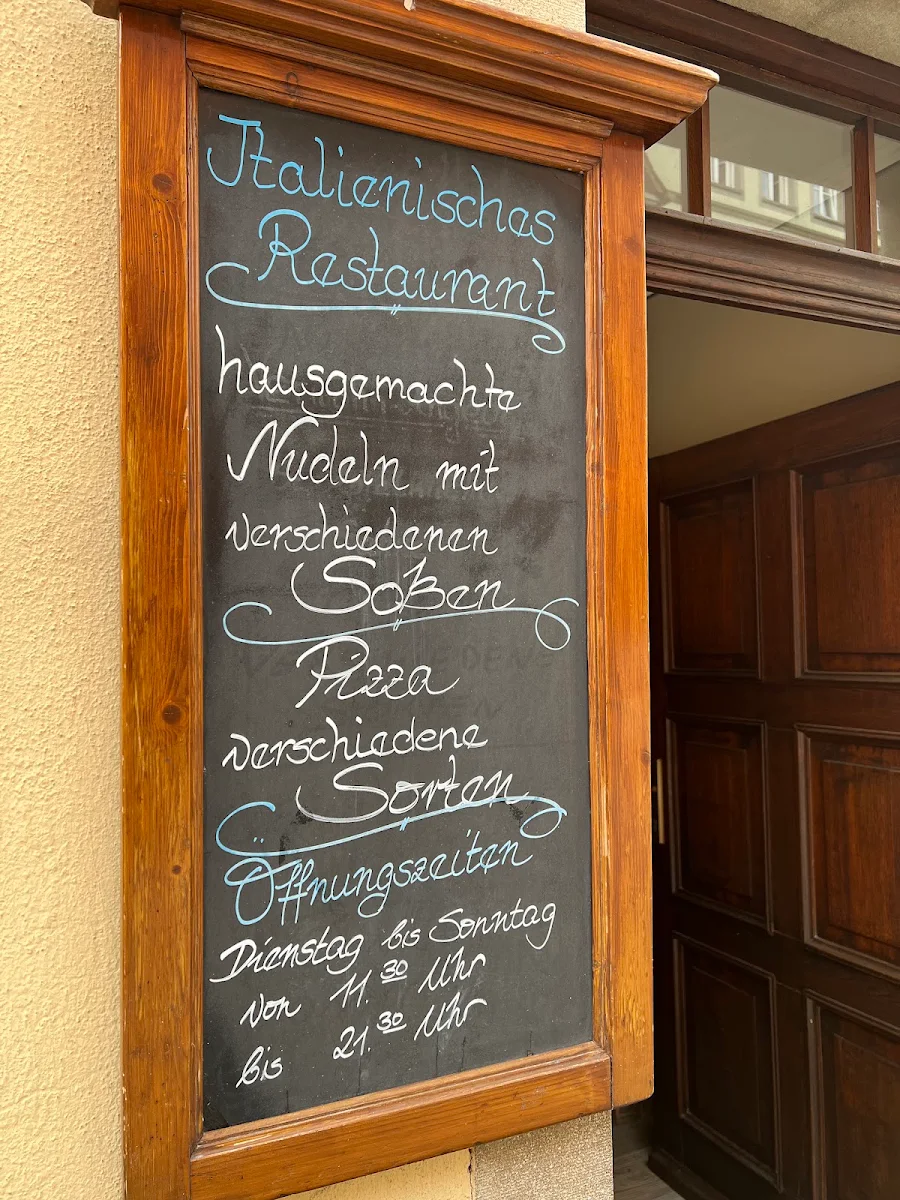 Italienisches
Restaurant
hausgemachte
Nudeln mit
verschiedenen
Soßen
Pizza
verschiedene
Sorten
Öffnungszeiten
Dienstag bis Sonntag
von 11.30 Uhr
bis 21.30 Uhr